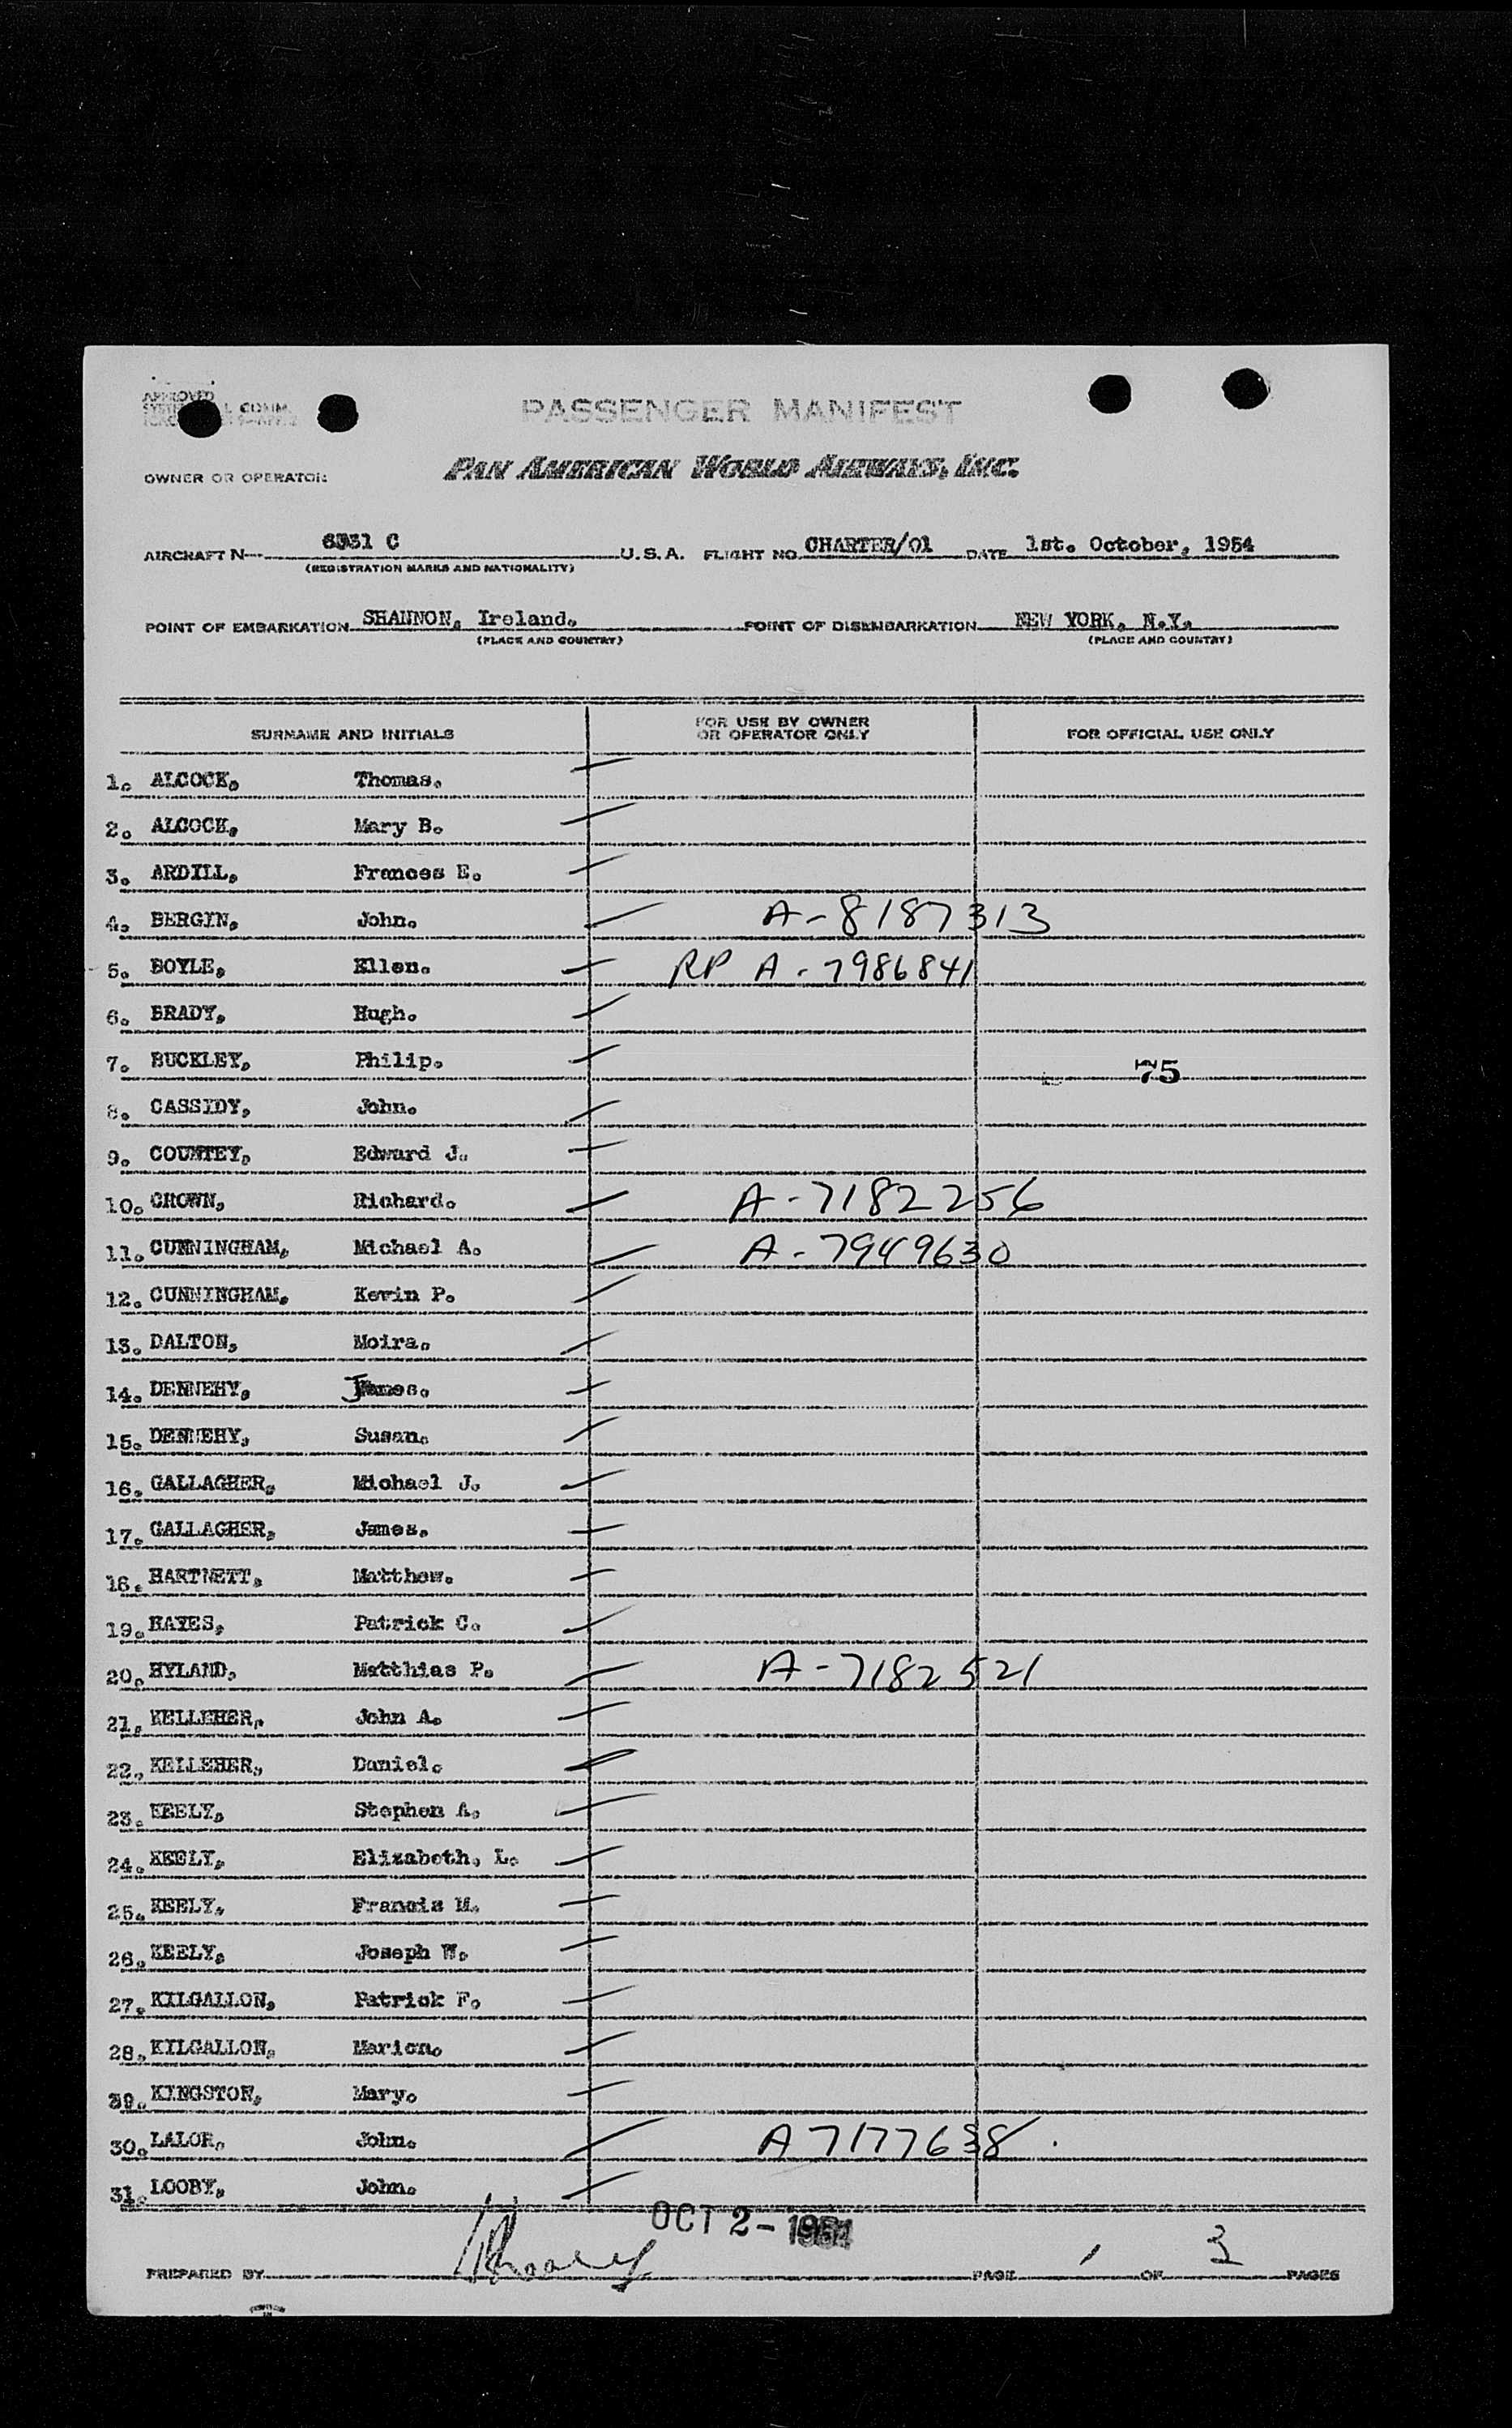 APPROVED
COMM.
PASSENGER MANIFEST
OWNER OR OPERATOR: PAN AMERICAN WORLD AIRWAYS, INC.
AIRCRAFT N— 6531 C U.S.A. FLIGHT NO. CHARTER/01 DATE 1st. October, 1954
(REGISTRATION MARKS AND NATIONALITY)
POINT OF EMBARKATION SHANNON, Ireland. POINT OF DISEMBARKATION NEW YORK, N.Y.
(PLACE AND COUNTRY) (PLACE AND COUNTRY)
SURNAME AND INITIALS FOR USE BY OWNER OR OPERATOR ONLY FOR OFFICIAL USE ONLY
1. ALCOCK, Thomas.
2. ALCOCK, Mary B.
3. ARDILL, Frances E.
4. BERGIN, John. A-8187313
5. BOYLE, Ellen. RP A-7986841
6. BRADY, Hugh.
7. BUCKLEY, Philip. 75
8. CASSIDY, John.
9. COUNTEY, Edward J.
10. CROWN, Richard. A-7182256
11. CUNNINGHAM, Michael A. A-7949630
12. CUNNINGHAM, Kevin P.
13. DALTON, Moira.
14. DENNEHY, James.
15. DENNEHY, Susan.
16. GALLAGHER, Michael J.
17. GALLAGHER, James.
18. HARTNETT, Matthew.
19. HAYES, Patrick C.
20. HYLAND, Matthias P. A-7182521
21. KELLEHER, John A.
22. KELLEHER, Daniel.
23. KEELY, Stephen A.
24. KEELY, Elizabeth, L.
25. KEELY, Francis M.
26. KEELY, Joseph W.
27. KILGALLON, Patrick F.
28. KILGALLON, Marion.
29. KINGSTON, Mary.
30. LALOR, John. A7177638
31. LOOBY, John.
OCT 2-1954
PREPARED BY PAGE 1 OF 3 PAGES